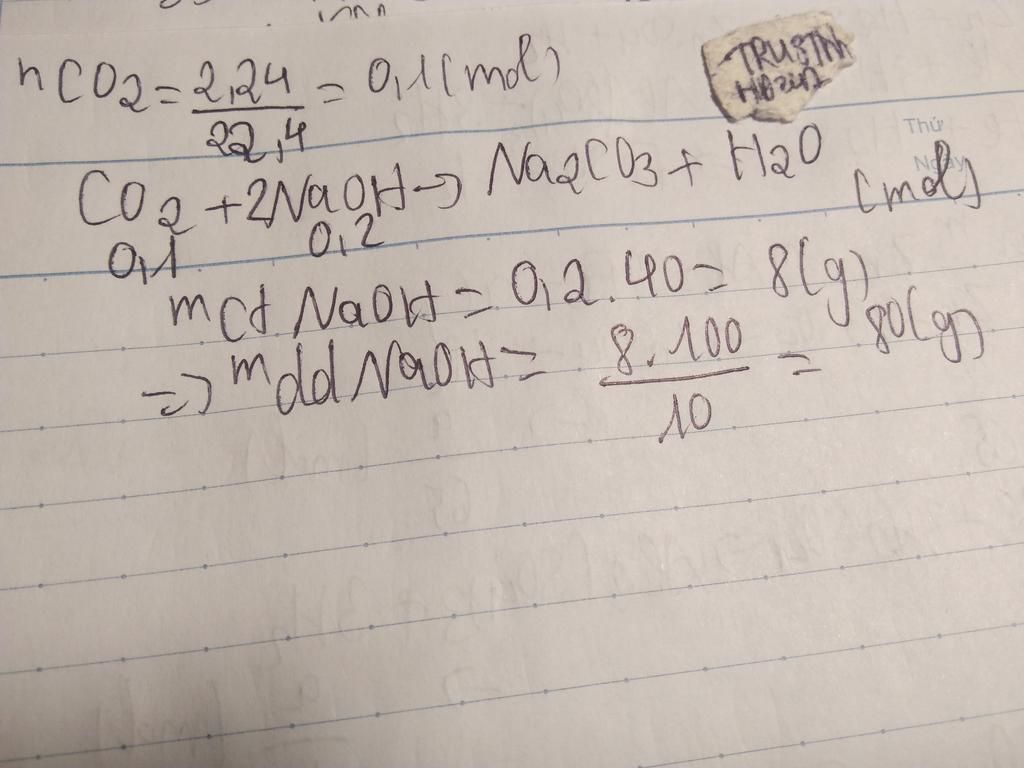 nCO2 = 2,24 / 22,4 = 0,1 (mol)
TRUSTM
Thứ
Ngày
CO2 + 2NaOH → Na2CO3 + H2O
0,1 0,2 (mol)
mct NaOH = 0,2 . 40 = 8 (g)
=> mdd NaOH = 8 . 100 / 10 = 80 (g)